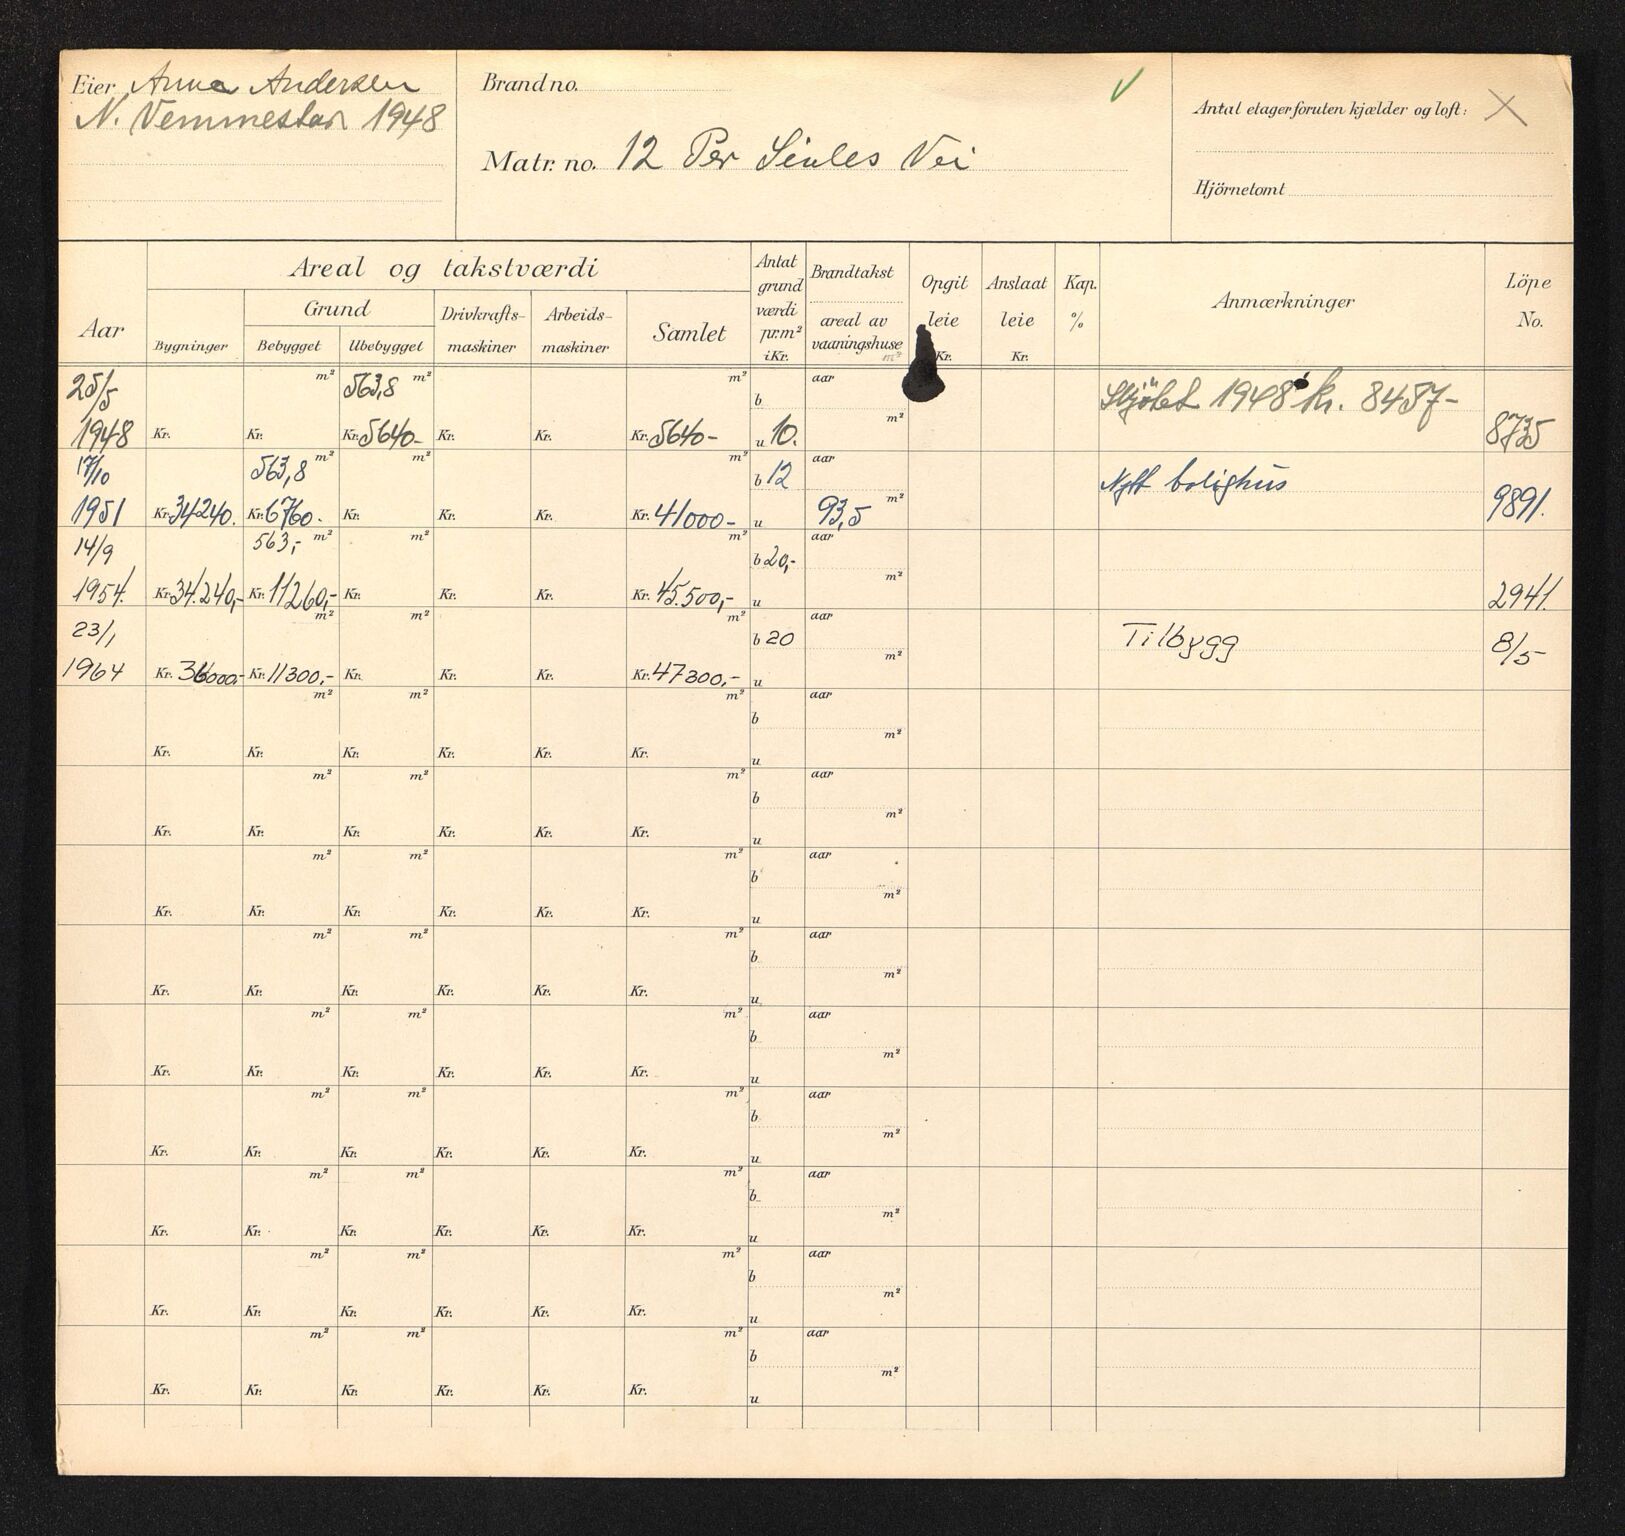 Eier Anna Andersen
N. Vemmestad 1948
Brand no.
Matr. no. 12 Per Sivles Vei
Antal etager foruten kjælder og loft: X
Hjörnetomt
Aar
Areal og takstværdi
Bygninger
Grund
Bebygget
Ubebygget
Drivkrafts-
maskiner
Arbeids-
maskiner
Samlet
Antat
grund
værdi
pr. m²
i Kr.
Brandtakst
areal av
vaaningshuse
m²
Opgit
leie
Kr.
Anslaat
leie
Kr.
Kap.
%
Anmærkninger
Löpe
No.
25/5 m² 563,8 m² m² aar
b m² Skjötet 1948 kr. 8457-
1948 Kr. Kr. Kr. 5640- Kr. Kr. Kr. 5640- u 10. 8735
17/10 563,8 m² m² m² b 12 aar Nytt bolighus
1951 Kr. 34240. Kr. 6760- Kr. Kr. Kr. Kr. 41000- u 93,5 m² 9891.
14/9 563,- m² m² m² b 20,- aar
1954. Kr. 34.240,- Kr. 11260,- Kr. Kr. Kr. Kr. 45.500,- u m² 2941.
23/1 m² m² m² b 20 aar Tilbygg 8/5
1964 Kr. 36000,- Kr. 11300,- Kr. Kr. Kr. Kr. 47300,- u m²
m² m² m² b aar
Kr. Kr. Kr. Kr. Kr. Kr. u m²
m² m² m² b aar
Kr. Kr. Kr. Kr. Kr. Kr. u m²
m² m² m² b aar
Kr. Kr. Kr. Kr. Kr. Kr. u m²
m² m² m² b aar
Kr. Kr. Kr. Kr. Kr. Kr. u m²
m² m² m² b aar
Kr. Kr. Kr. Kr. Kr. Kr. u m²
m² m² m² b aar
Kr. Kr. Kr. Kr. Kr. Kr. u m²
m² m² m² b aar
Kr. Kr. Kr. Kr. Kr. Kr. u m²
m² m² m² b aar
Kr. Kr. Kr. Kr. Kr. Kr. u m²
m² m² m² b aar
Kr. Kr. Kr. Kr. Kr. Kr. u m²